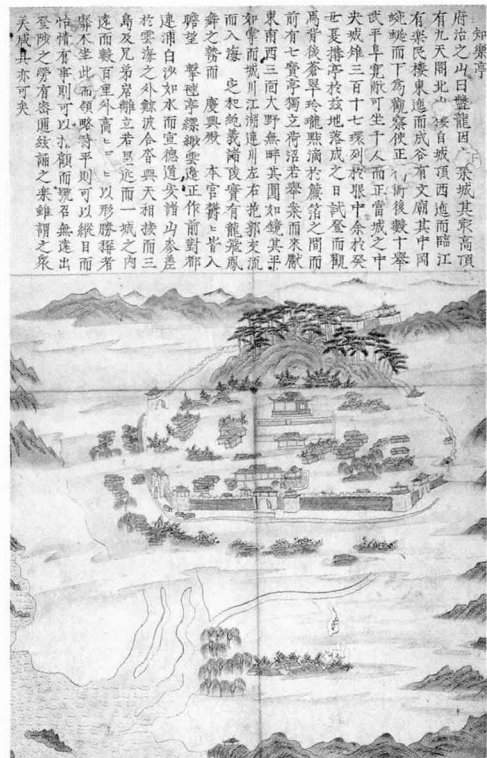 知樂亭
府治之山曰盤龍因　築城其最高頂
有九天閣北山　自城頂西迤而臨江
有樂民樓東迤而成谷有文廟其中岡
蜿蜒而下為觀察使正　衙後數十舉
武平阜寬敞可坐千人而正當城之中
夾城雉三百十七環列於眼中余於癸
丑夏搆亭於玆地落成之日試登而觀
焉背後蒼翠玲瓏點滴於簾箔之間而
前有七寶亭獨立荷沼若舉案而來獻
東南西三面大野無畔其圓如鏡其平
如掌而城川江湖連川左右抱郭交流
而入海　義　陵實有龍飛鳳
舜之勢而　慶興殿　本宮欝ヒ皆入
瞻望　擊毬亭縹緲雲邊正作前對都
連浦白沙如水而宣德道安諸山參差
於雲海之外鯨波合沓與天相接而三
島及兄弟岩離立若　而一城之內
遠而數百里外　ヒ以形勝稱者
不坐此而領略時平則可以縱目而
怡情有事則可以指顧而號召無遠出
登陟之勞有密邇絃誦之樂雖謂之眾
美咸具亦可矣